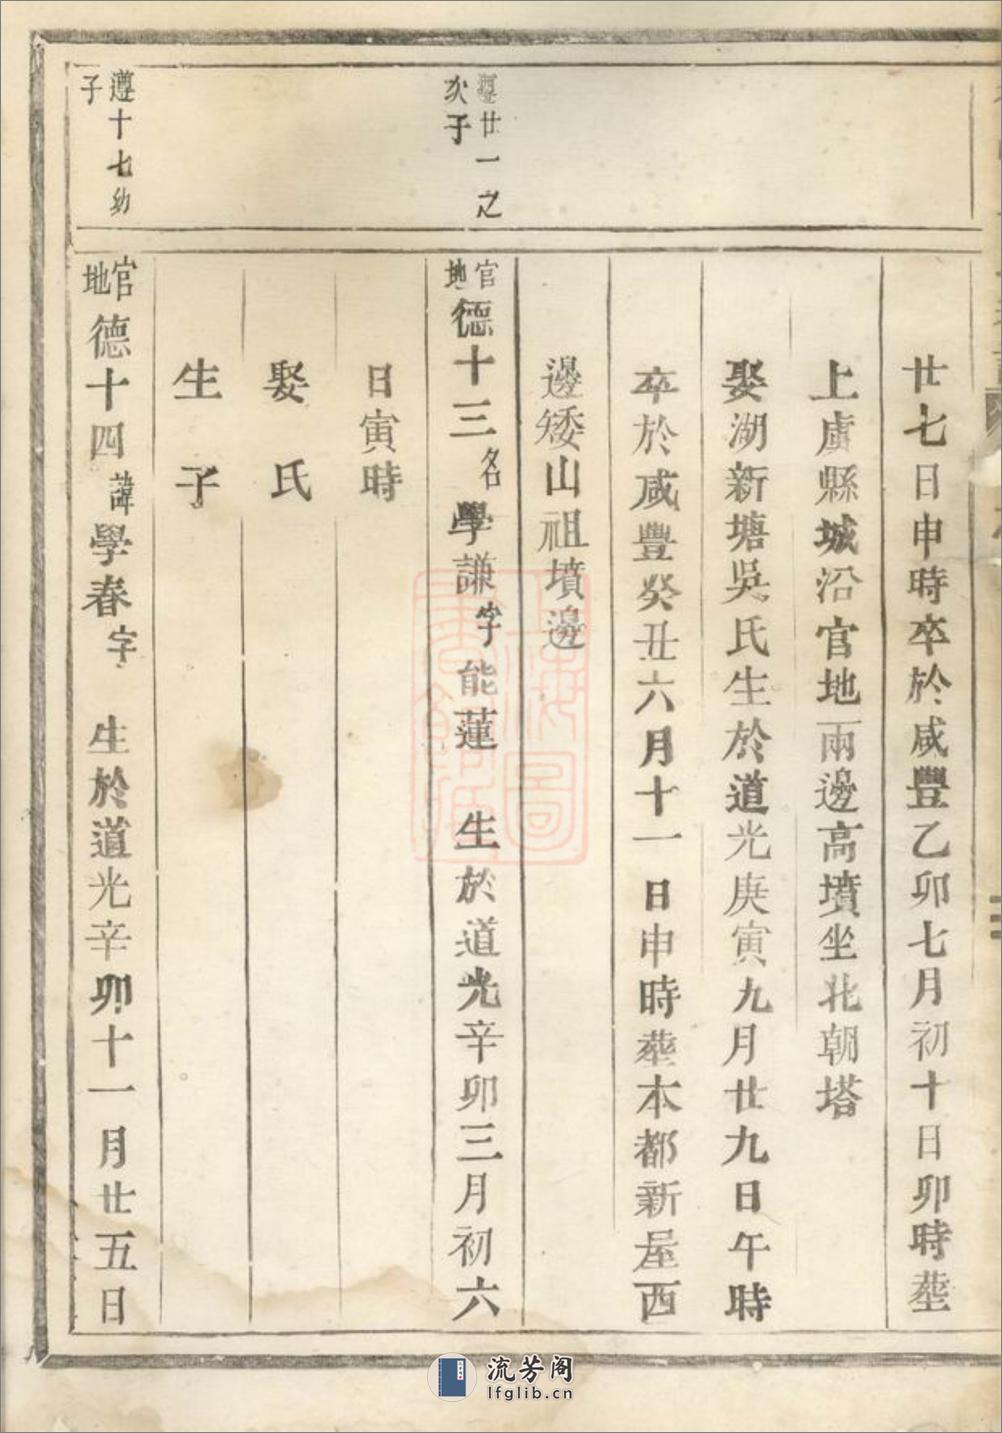 廿七日申時卒於咸豐乙卯七月初十日卯時塟
上虞縣城沿官地兩邊高墳坐北朝塔
娶湖新塘吳氏生於道光庚寅九月廿九日午時
卒於咸豐癸丑六月十一日申時塟本都新屋西
邊矮山祖墳邊
遵廿一之
次子
官地德十三名學謙字能蓮 生於道光辛卯三月初六
日寅時
娶 氏
生 子
遵十七幼
子
官地德十四諱學春字 生於道光辛卯十一月廿五日
流芳阁
lfglib.cn